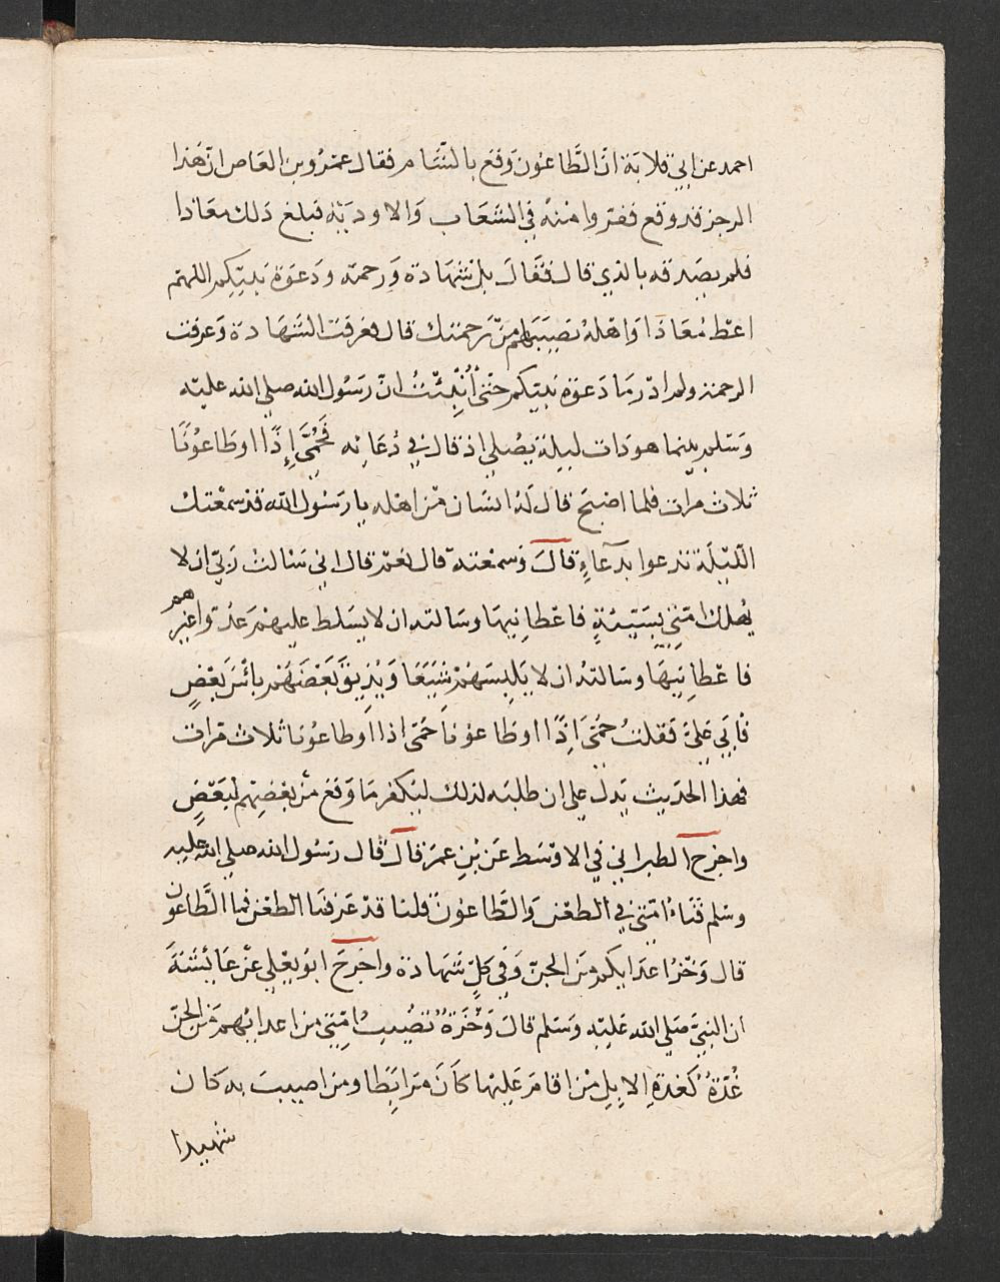 احمد عن ابي قلابة ان الطاعون وقع بالشام فقال عمرو بن العاص ان هذا
الرجز قد وقع ففروا منه في الشعاب والاودية فبلغ ذلك معاذا
فلم يصدقه بالذي قال فقال بل شهادة ورحمة ودعوة نبيكم اللهم
اعط معاذا واهله نصيبهم من رحمتك قال فعرفت الشهادة وعرفت
الرحمة ولم ادر ما دعوة نبيكم حتى أنبئت ان رسول الله صلي الله عليه
وسلم بينما هو ذات ليلة يصلي اذ قال في دعائه فحمى إذا او طاعونا
ثلاث مرات فلما اصبح قال له انسان من اهله يا رسول الله قد سمعتك
الليلة تدعوا بدعاء قال وسمعته قال نعم قال اني سالت ربي ان لا
يهلك امتي بسنة فاعطانيها وسالته ان لا يسلط عليهم عدوا غيرهم
فاعطانيها وسالته ان لا يلبسهم شيعا ويذيق بعضهم بائس بعض
فابي علي فقلت حمى اذا او طاعونا حمى اذا او طاعونا ثلاث مرات
فهذا الحديث يدل علي ان طلبه لذلك ليكفر ما وقع من بعضهم لبعض
واخرج الطبراني في الاوسط عن بن عمر قال قال رسول الله صلي الله عليه
وسلم فناء امتي في الطعن والطاعون قلنا قد عرفنا الطعن فما الطاعون
قال وخز اعدايكم من الجن وفي كل شهادة واخرج ابو يعلي عن عائشة
ان النبي صلي الله عليه وسلم قال وخزة تصيب امتي من اعدائهم من الجن
غدة كغدة الابل من اقام عليها كان مرابطا ومن اصيب به كان
شهيدا